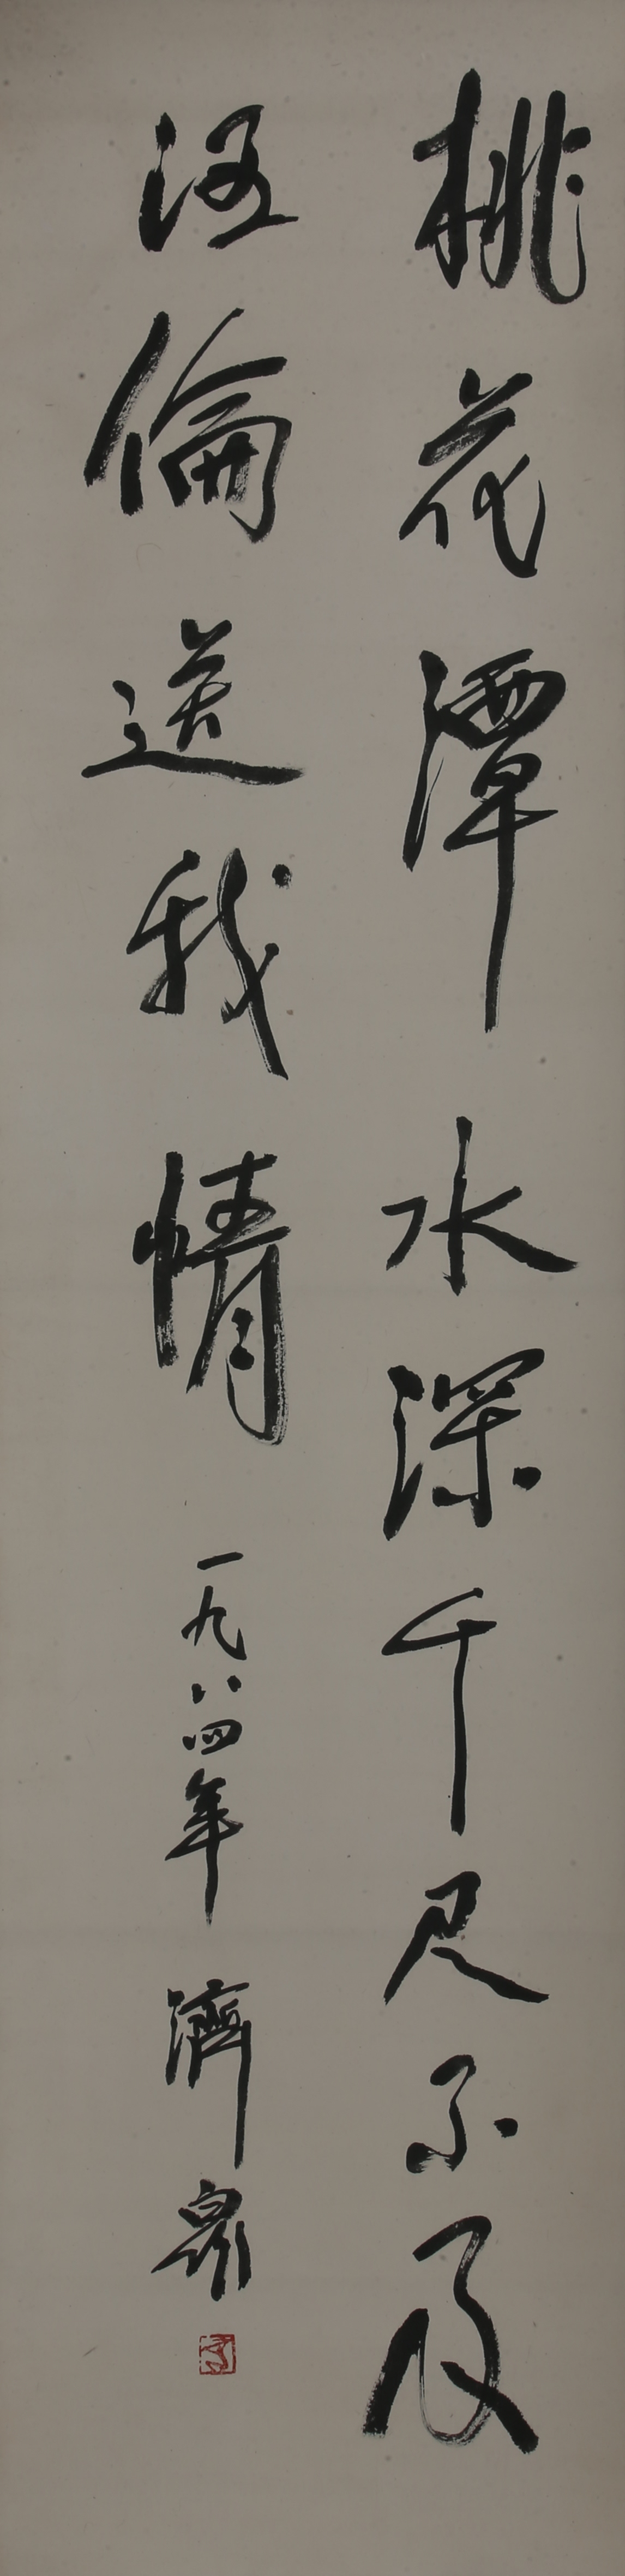 桃花潭水深千尺不及
汪倫送我情 一九八四年 濟衆